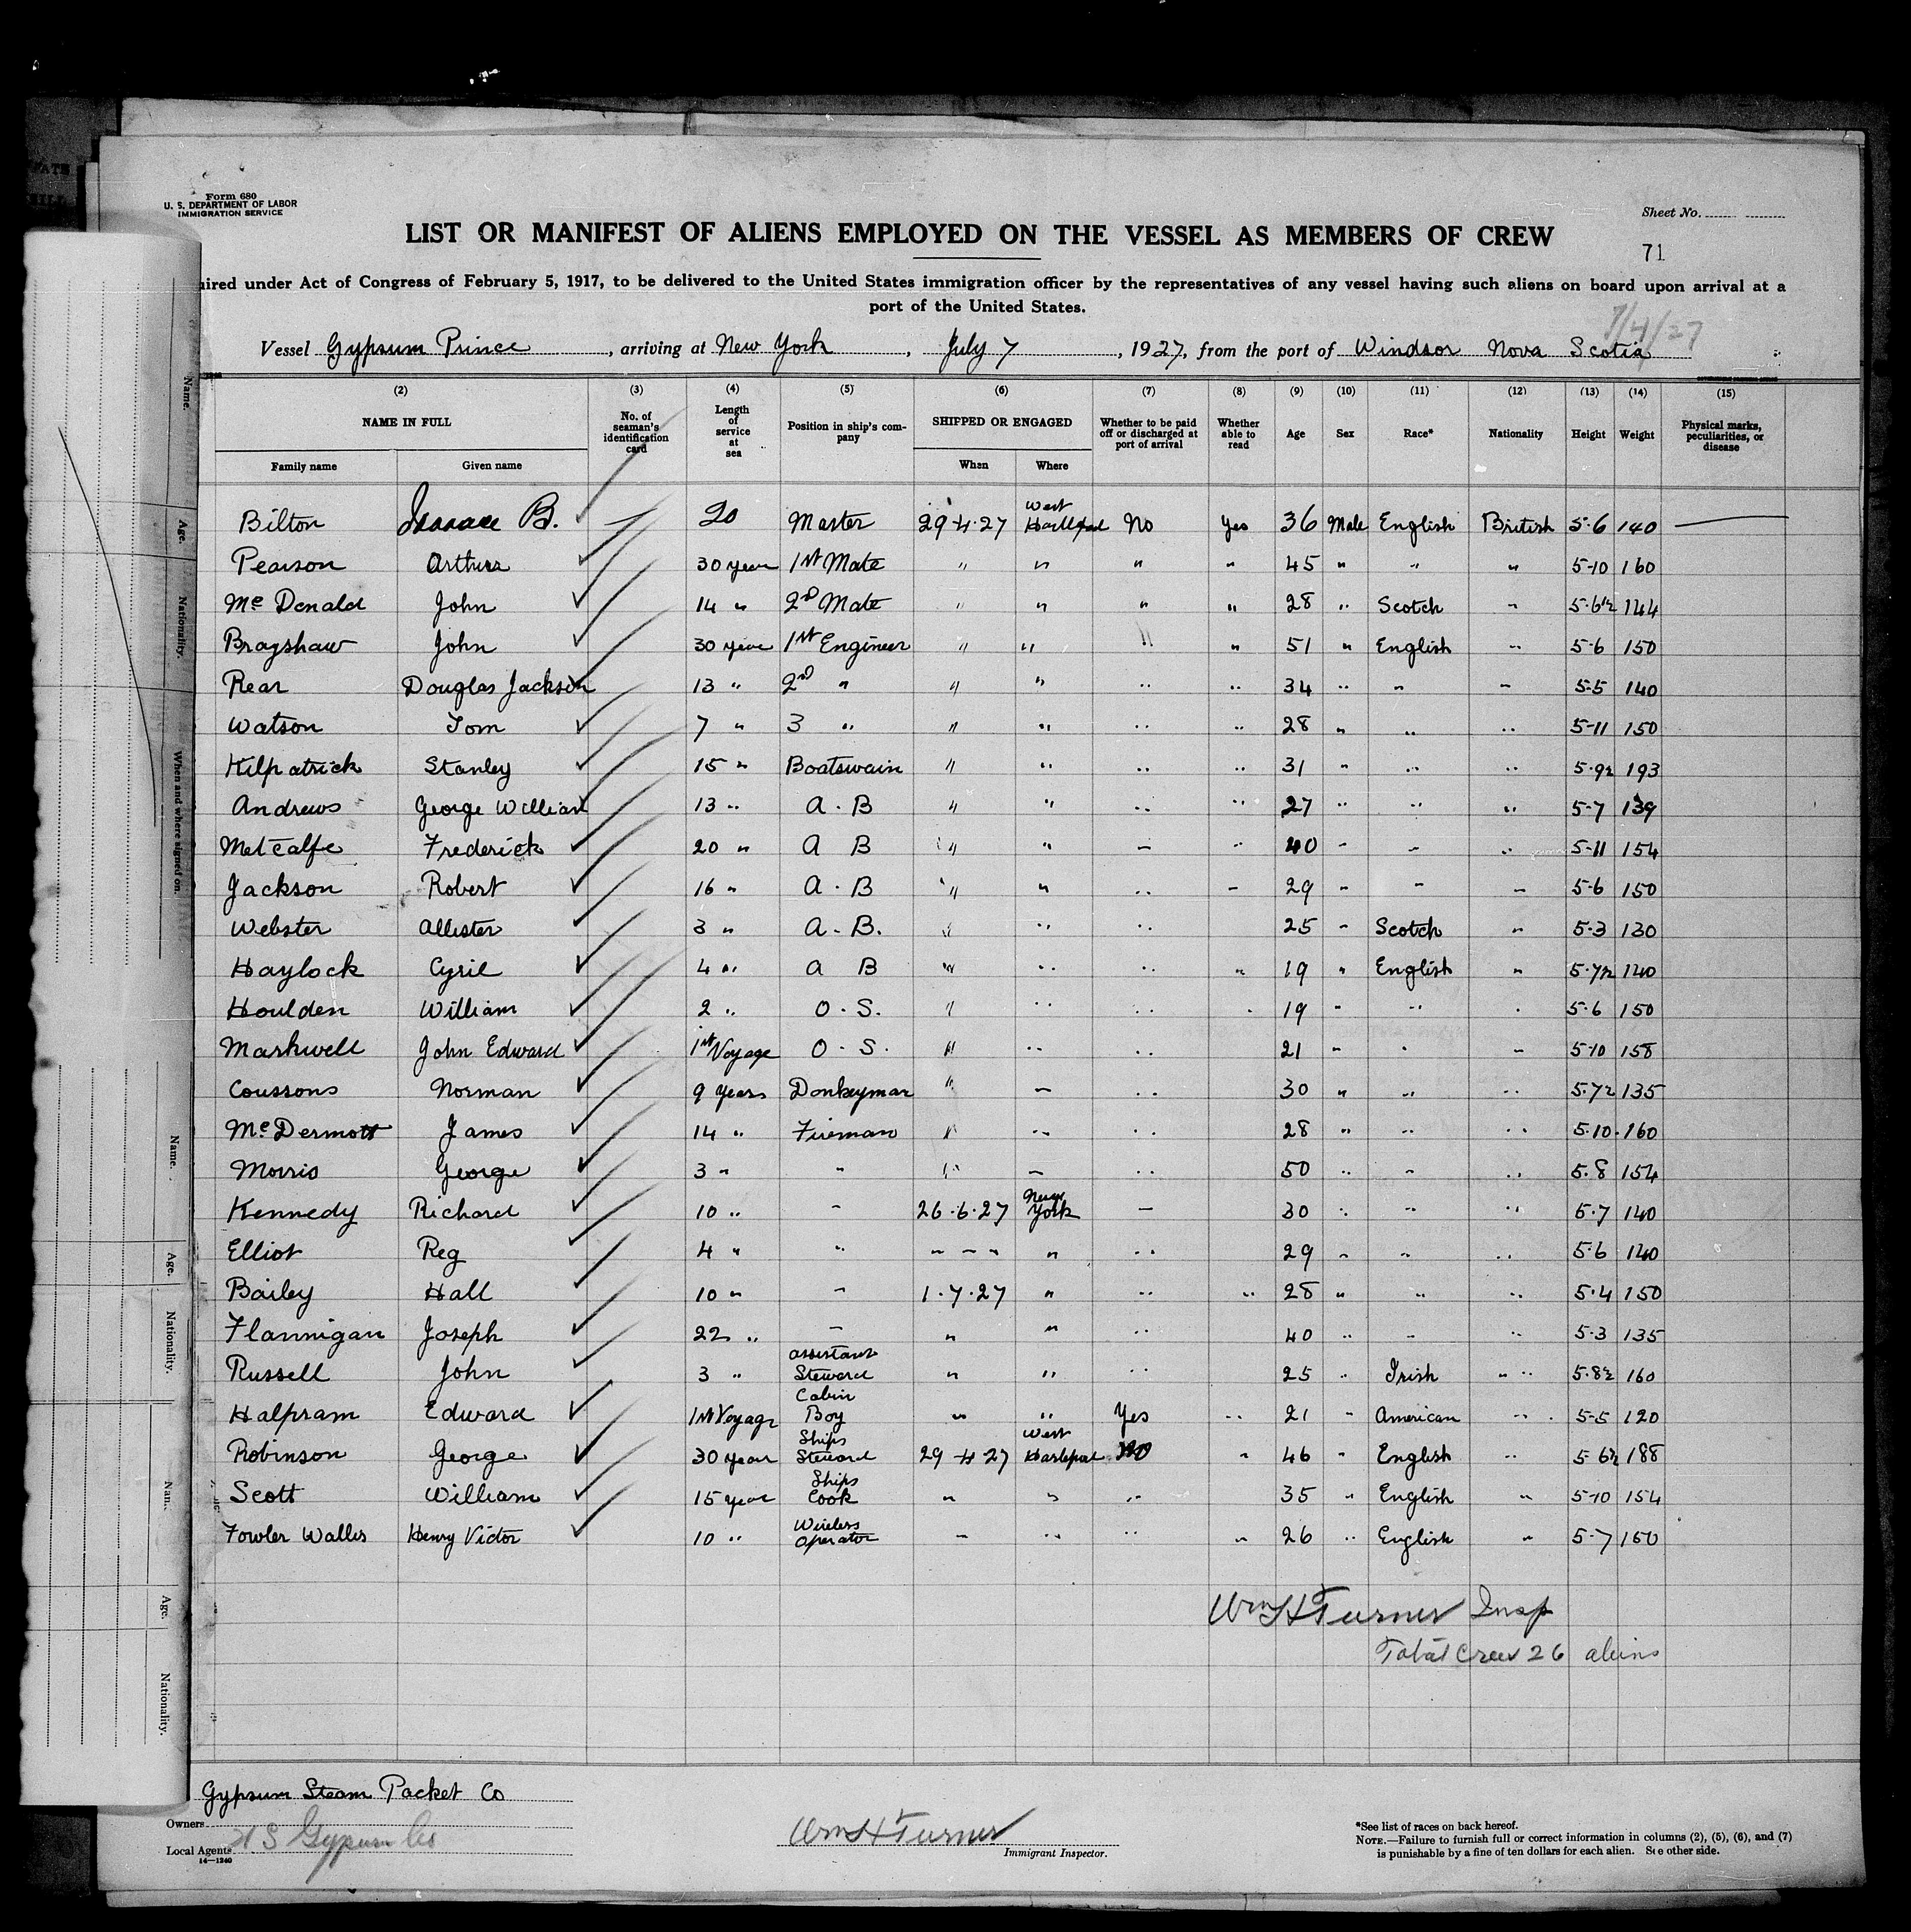 Form 680
U. S. DEPARTMENT OF LABOR
IMMIGRATION SERVICE
Sheet No.
LIST OR MANIFEST OF ALIENS EMPLOYED ON THE VESSEL AS MEMBERS OF CREW
71
uired under Act of Congress of February 5, 1917, to be delivered to the United States immigration officer by the representatives of any vessel having such aliens on board upon arrival at a
port of the United States.
7/4/27
Vessel Gypsum Prince, arriving at New York, July 7, 1927, from the port of Windsor Nova Scotia
(2) (3) (4) (5) (6) (7) (8) (9) (10) (11) (12) (13) (14) (15)
NAME IN FULL No. of seaman's identification card Length of service at sea Position in ship's company SHIPPED OR ENGAGED Whether to be paid off or discharged at port of arrival Whether able to read Age Sex Race* Nationality Height Weight Physical marks, peculiarities, or disease
Family name Given name When Where
Bilton Isaac B. — 20 Master 29-4-27 West Hartlepool No Yes 36 Male English British 5-6 140 —
Pearson Arthur 30 year 1st Mate " " " " 45 " " " 5-10 160
Mc Donald John 14 " 2nd Mate " " " " 28 " Scotch " 5-6½ 144
Bragshaw John 30 year 1st Engineer " " " " 51 " English " 5-6 150
Rear Douglas Jackson 13 " 2nd " " " " " 34 " " " 5-5 140
Watson Tom 7 " 3 " " " " " 28 " " " 5-11 150
Kilpatrick Stanley 15 " Boatswain " " " " 31 " " " 5-9½ 193
Andrews George William 13 " A.B " " " " 27 " " " 5-7 139
Metcalfe Frederick 20 " A B " " " " 40 " " " 5-11 154
Jackson Robert 16 " A.B " " " " 29 " " " 5-6 150
Webster Allister 3 " A.B. " " " 25 " Scotch " 5-3 130
Haylock Cyril 4 " A B " " " " 19 " English " 5-7½ 140
Houlden William 2 " O.S. " " " " 19 " " " 5-6 150
Markwell John Edward 1st Voyage O.S. " " " 21 " " " 5-10 158
Coussons Norman 9 years Donkeyman " " " 30 " " " 5-7½ 135
McDermott James 14 " Fireman " " " 28 " " " 5-10 160
Morris George 3 " " " " " 50 " " " 5-8 154
Kennedy Richard 10 " " 26-6-27 New York " 30 " " " 5-7 140
Elliot Reg 4 " " " " " 29 " " " 5-6 140
Bailey Hall 10 " " 1-7-27 " " " 28 " " " 5-4 150
Flannigan Joseph 22 " " " " " 40 " " " 5-3 135
Russell John 3 " assistant Steward " " " 25 " Irish " 5-8½ 160
Halpram Edward 1st Voyage Cabin Boy " " Yes " 21 " American " 5-5 120
Robinson George 30 year Ships Steward 29-4-27 West Hartlepool No " 46 " English " 5-6½ 188
Scott William 15 year Ships Cook " " " 35 " English " 5-10 154
Fowler Wallis Henry Victor 10 " Wireless Operator " " " " 26 " English " 5-7 150
Wm H Turner Insp
Total Crew 26 aliens
Gypsum Steam Packet Co
Owners
Local Agents U S Gypsum Co
14—1240
Wm H Turner
Immigrant Inspector.
*See list of races on back hereof.
NOTE.—Failure to furnish full or correct information in columns (2), (5), (6), and (7)
is punishable by a fine of ten dollars for each alien. See other side.
Name.
Age.
Nationality.
When and where signed on.
Name.
Age.
Nationality.
Nam.
Age.
Nationality.